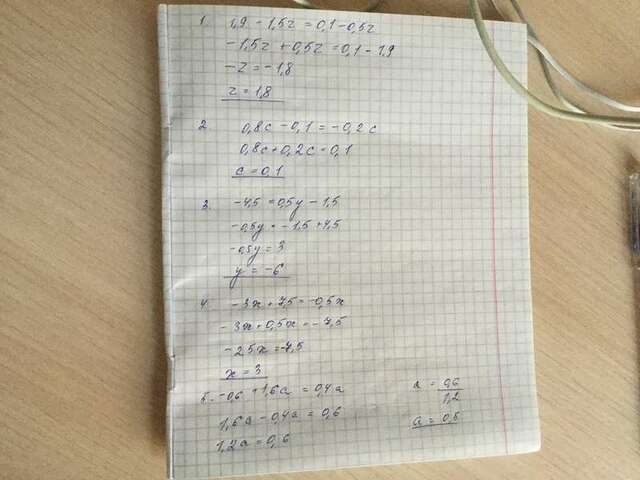 1. 1,9 - 1,5z = 0,1 - 0,5z
-1,5z + 0,5z = 0,1 - 1,9
-z = -1,8
z = 1,8
2. 0,8c - 0,1 = -0,2c
0,8c + 0,2c = 0,1
c = 0,1
3. -4,5 = 0,5y - 1,5
-0,5y = -1,5 + 4,5
-0,5y = 3
y = -6
4. -3x + 7,5 = -0,5x
-3x + 0,5x = -7,5
-2,5x = -7,5
x = 3
5. -0,6 + 1,6a = 0,4a
1,6a - 0,4a = 0,6
1,2a = 0,6
a = 0,6/1,2
a = 0,5